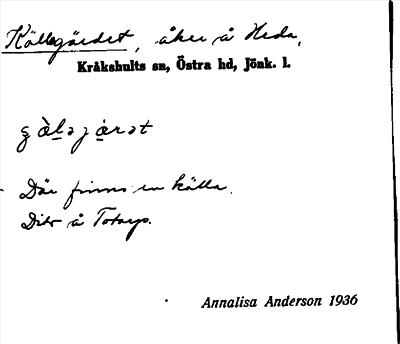 Källegärdet, åker å Heda,
Kråkshults sn, Östra hd, Jönk. l.
Där finns en källa.
Dito å Totarp.
Annalisa Anderson 1936